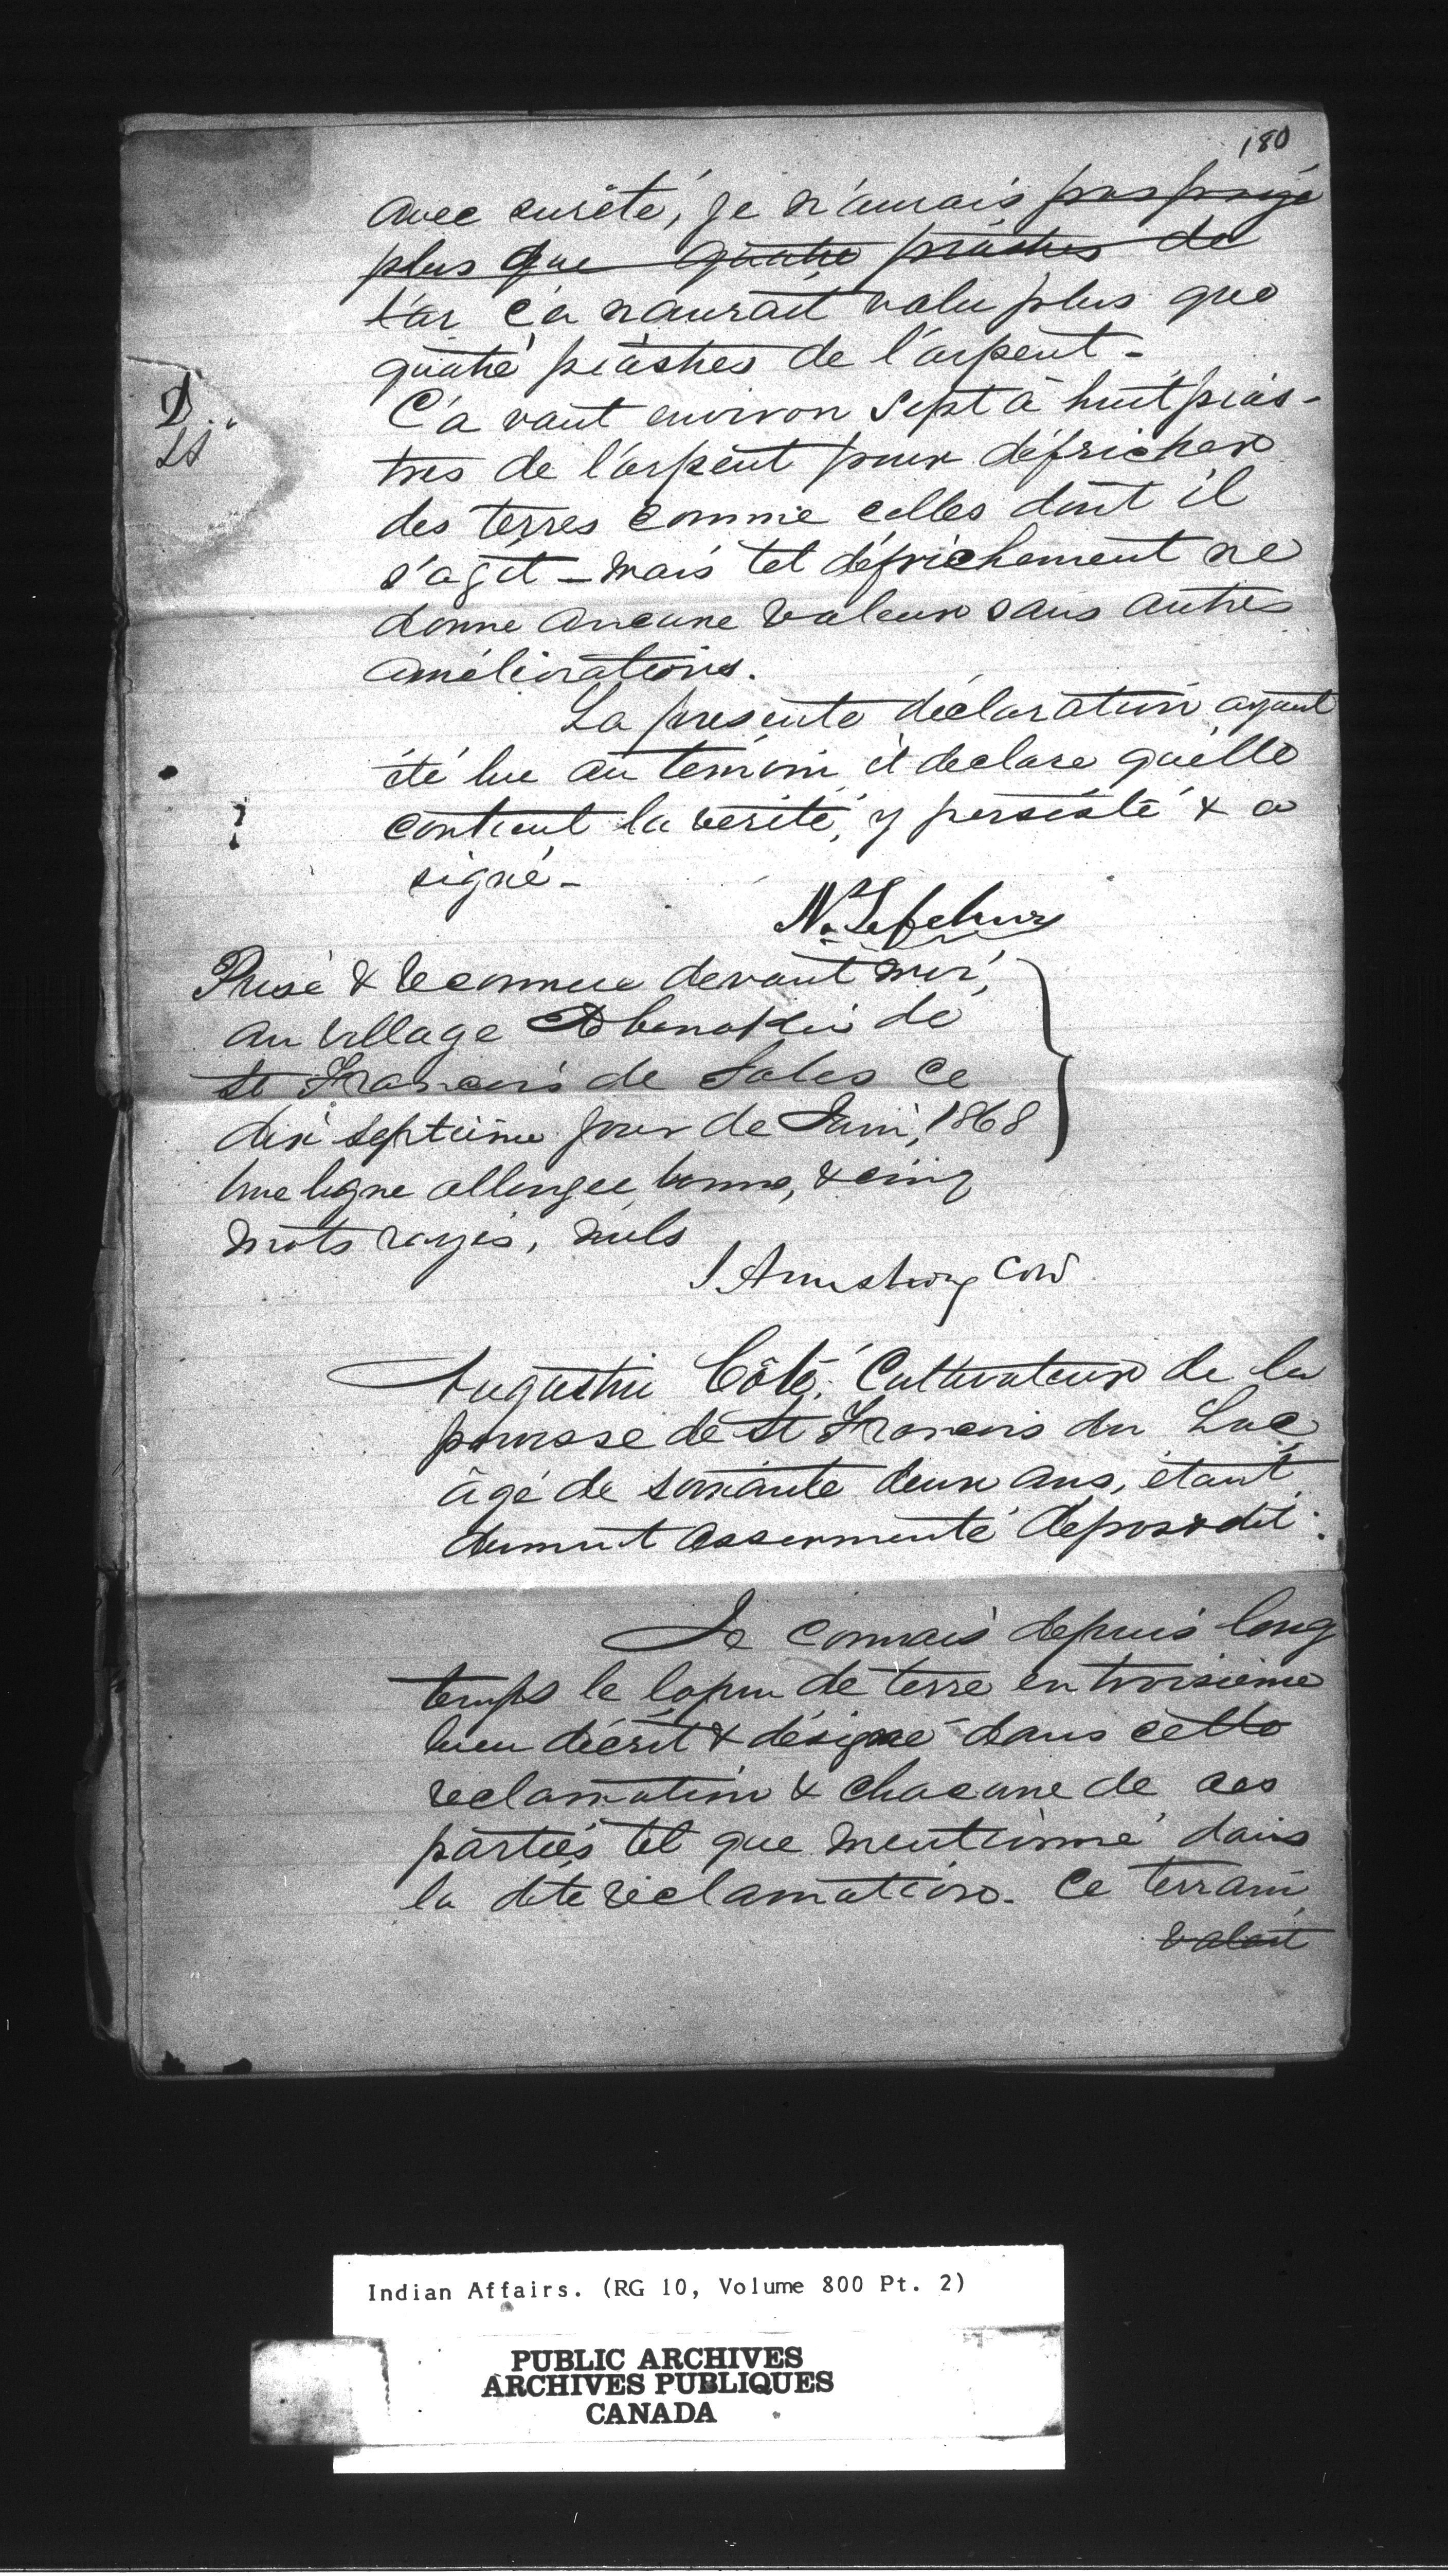 180
avec sureté, je n'aurais pas payé
plus que quatre piastres de
l'ar ça naurait valu plus que
quatre piastres de l'arpent -
Ça vaut environ sept à huit pias-
tres de l'arpent pour défricher
des terres comme celles dont il
s'agit - mais tel défrichement ne
donne aucune valeur sans autres
améliorations.
La presente déclaration ayant
été lue au temoin il declare qu'elle
contient la verité, y persiste & a
signé -
N. Lefebvre
Prise & reconnue devant moi,
au village Abenakis de
St François de Sales ce
dix septième jour de Juin, 1868
Une ligne allongee bonne, & cinq
mots rayés, nuls
J Armstrong
Augustin Côté, Cultivateur de la
paroisse de St Francois du Lac
âgé de soixante deux ans, étant
dument assermenté depose & dit :
Je connais depuis long
temps le lopin de terre en troisième
lieu décrit & désigné dans cette
reclamation & chacune de ces
parties tel que mentionné dans
la dite réclamation. Ce terrain
valait
Indian Affairs. (RG 10, Volume 800 Pt. 2)
PUBLIC ARCHIVES
ARCHIVES PUBLIQUES
CANADA